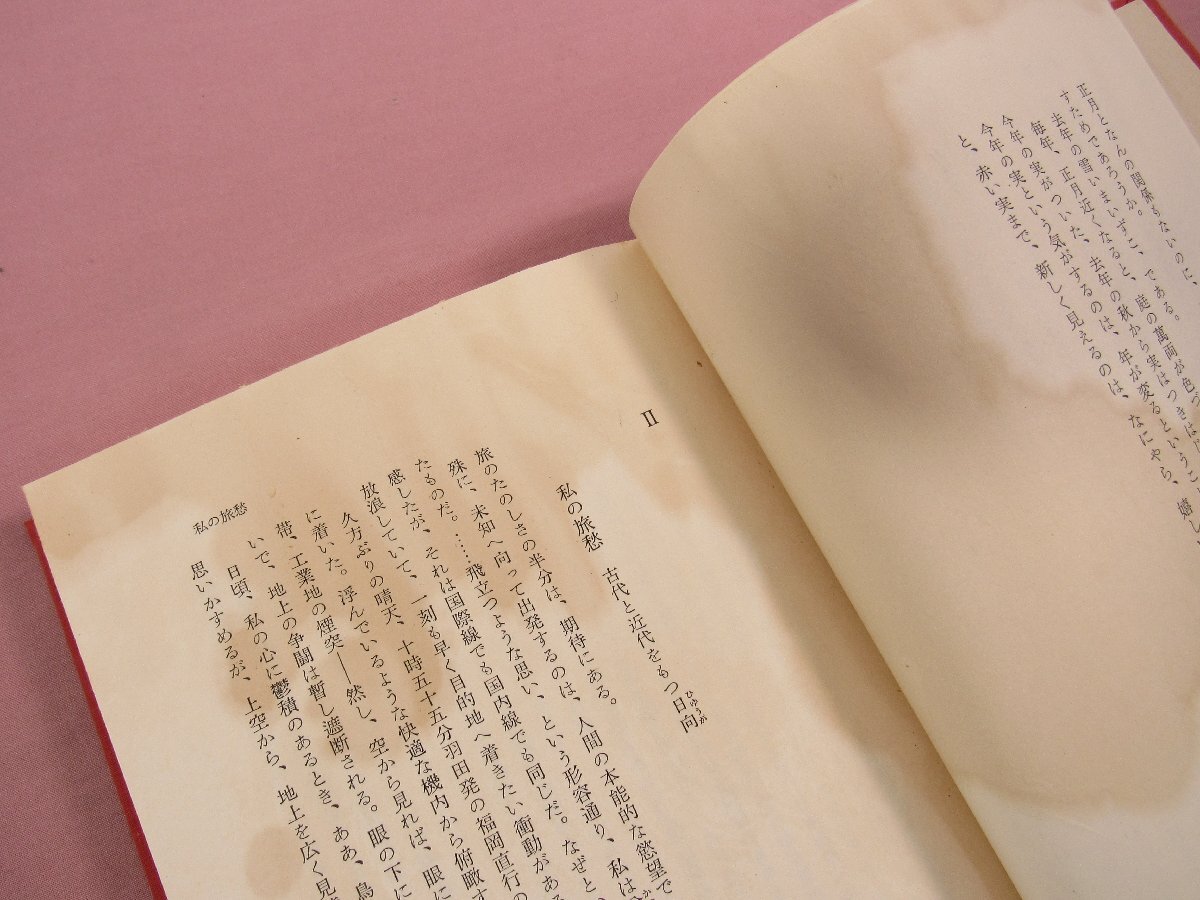 正月となんの関係もないのに、
すためであろうか。
去年の雪いまいずこ、である。庭の萬両が色づ
毎年、正月近くなると、
実がついた、去年の秋から実はつきは
今年の実という気がするのは、年が変るということ
今年の実まで、新しく見えるのは、なにやら、嬉し
と、赤い
Ⅱ
私の旅愁 古代と近代をもつ日向
ひゅうが
旅のたのしさの半分は、期待にある。
殊に、未知へ向って出発するのは、人間の本能的な慾望で
たものだ。……飛立つような思い、という形容通り、私は
感したが、それは国際線でも国内線でも同じだ。なぜと
放浪していて、一刻も早く目的地へ着きたい衝動があ
久方ぶりの晴天、十時五十五分羽田発の福岡直行の
に着いた。浮んでいるような快適な機内から俯瞰す
帯、工業地の煙突――然し、空から見れば、眼に
いで、地上の争闘は暫し遮断される。眼の下に
日頃、私の心に鬱積のあるとき、ああ、鳥
思いかすめるが、上空から、地上を広く見
私の旅愁